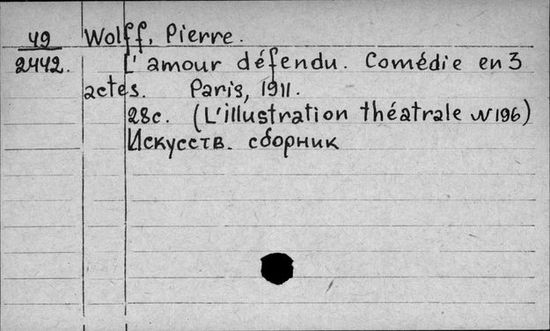 49 Wolff, Pierre.
2442. L'amour défendu. Comédie en 3
actes. Paris, 1911.
28c. (L'illustration théatrale N 196)
Искусств. сборник